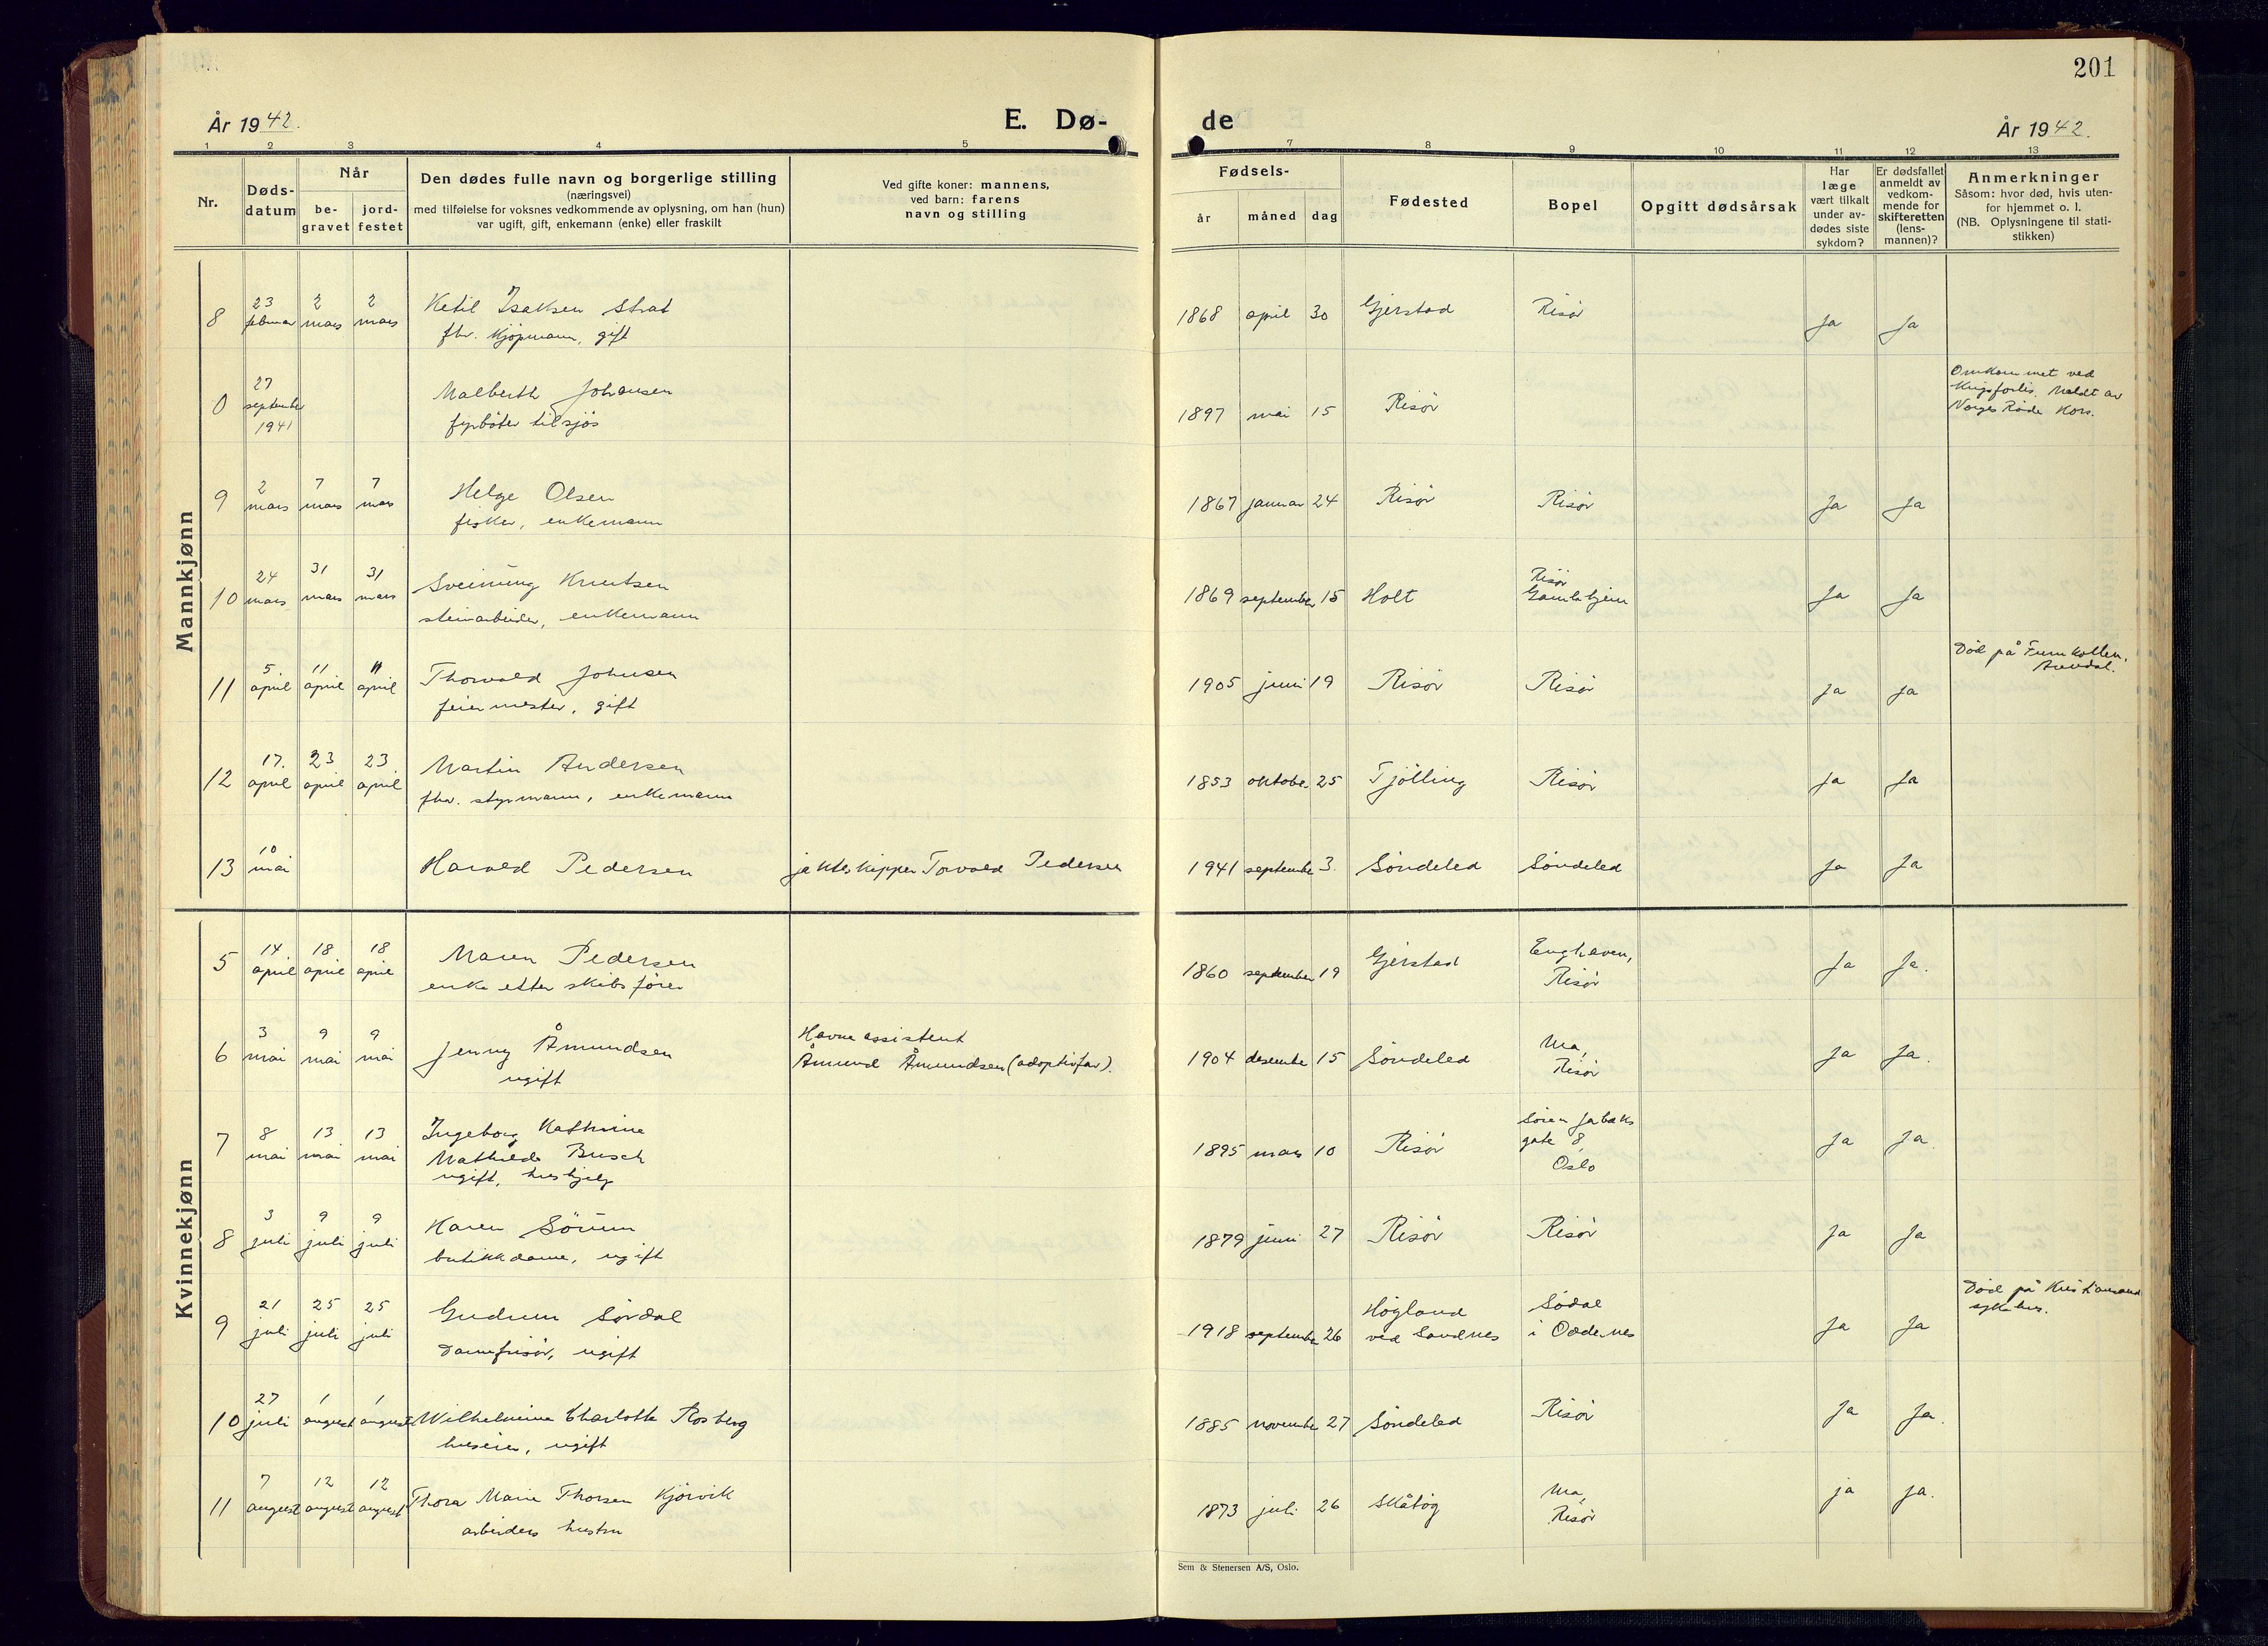 201
År 1942.
E. Dø-
de
År 1942.
1 2 3 4 5 7 8 9 10 11 12 13
Nr.
Døds-
datum
Når
be-
gravet
jord-
festet
Den dødes fulle navn og borgerlige stilling
(næringsvei)
med tilføielse for voksnes vedkommende av oplysning, om han (hun)
var ugift, gift, enkemann (enke) eller fraskilt
Ved gifte koner: mannens,
ved barn: farens
navn og stilling
Fødsels-
år måned dag
Fødested
Bopel
Opgitt dødsårsak
Har
læge
vært tilkalt
under av-
dødes siste
sykdom?
Er dødsfallet
anmeldt av
vedkom-
mende for
skifteretten
(lens-
mannen)?
Anmerkninger
Såsom: hvor død, hvis uten-
for hjemmet o. l.
(NB. Oplysningene til stati-
stikken)
Mannkjønn
8 23 februar 2 mars 2 mars Ketil Isaksen Strat 1868 april 30 Gjerstad Risör Ja Ja
fhv. kjøpmann, gift
0 27 september 1941 Malberth Johansen 1897 mai 15 Risör Omkommet ved
fyrböter tilsjös krigsforlis. Meldt av
Norges Röde Kors.
9 2 mars 7 mars 7 mars Helge Olsen 1867 januar 24 Risör Risör Ja Ja
fisker, enkemann
10 24 mars 31 mars 31 mars Sveinung Knutsen 1869 september 15 Holt Risör Gamlehjem Ja Ja
steinarbeider, enkemann
11 5. april 11 april 11 april Thorvald Johnsen 1905 juni 19 Risör Risör Ja Ja Död på Furukollen,
feiermester, gift Arendal.
12 17. april 23 april 23 april Martin Andersen 1853 oktober 25 Tjölling Risör Ja Ja
fhv. styrmann, enkemann
13 10 mai Harald Pedersen jakteskipper Torvald Pedersen 1941 september 3. Söndeled Söndeled Ja Ja
Kvinnekjønn
5 14 april 18 april 18 april Maren Pedersen 1860 september 19 Gjerstad Enghaven, Risör Ja Ja.
enke etter skibsförer
6 3 mai 9 mai 9 mai Jenny Åmundsen Havneassistent 1904 desember 15 Söndeled Ura, Risör Ja Ja.
ugift Åmund Åmundsen (adoptivfar).
7 8 mai 13 mai 13 mai Ingeborg Kathrine 1895 mars 10 Risör Sören Jabæks gate 8, Oslo Ja Ja.
Mathilde Busch
ugift, hushjelp
8 3 juli 9 juli 9 juli Karen Sörum 1879 juni 27 Risör Risör Ja Ja
butikkdame, ugift
9 21 juli 25 juli 25 juli Gudrun Sørdal 1918 september 26 Högland ved Sandnes Södal i Oddernes Ja Ja Död på Kristiansand
damefrisör, ugift sykehus.
10 27 juli 1 august 1 august Wilhelmine Charlotte Rosberg 1885 november 27 Söndeled Risör Ja Ja.
huseier, ugift
11 7 august 12 august 12 august Thora Marie Thorsen Kjörvik 1873 juli 26 Skåtöy Ura, Risör ja ja.
arbeiders hustru
Sem & Stenersen A/S, Oslo.